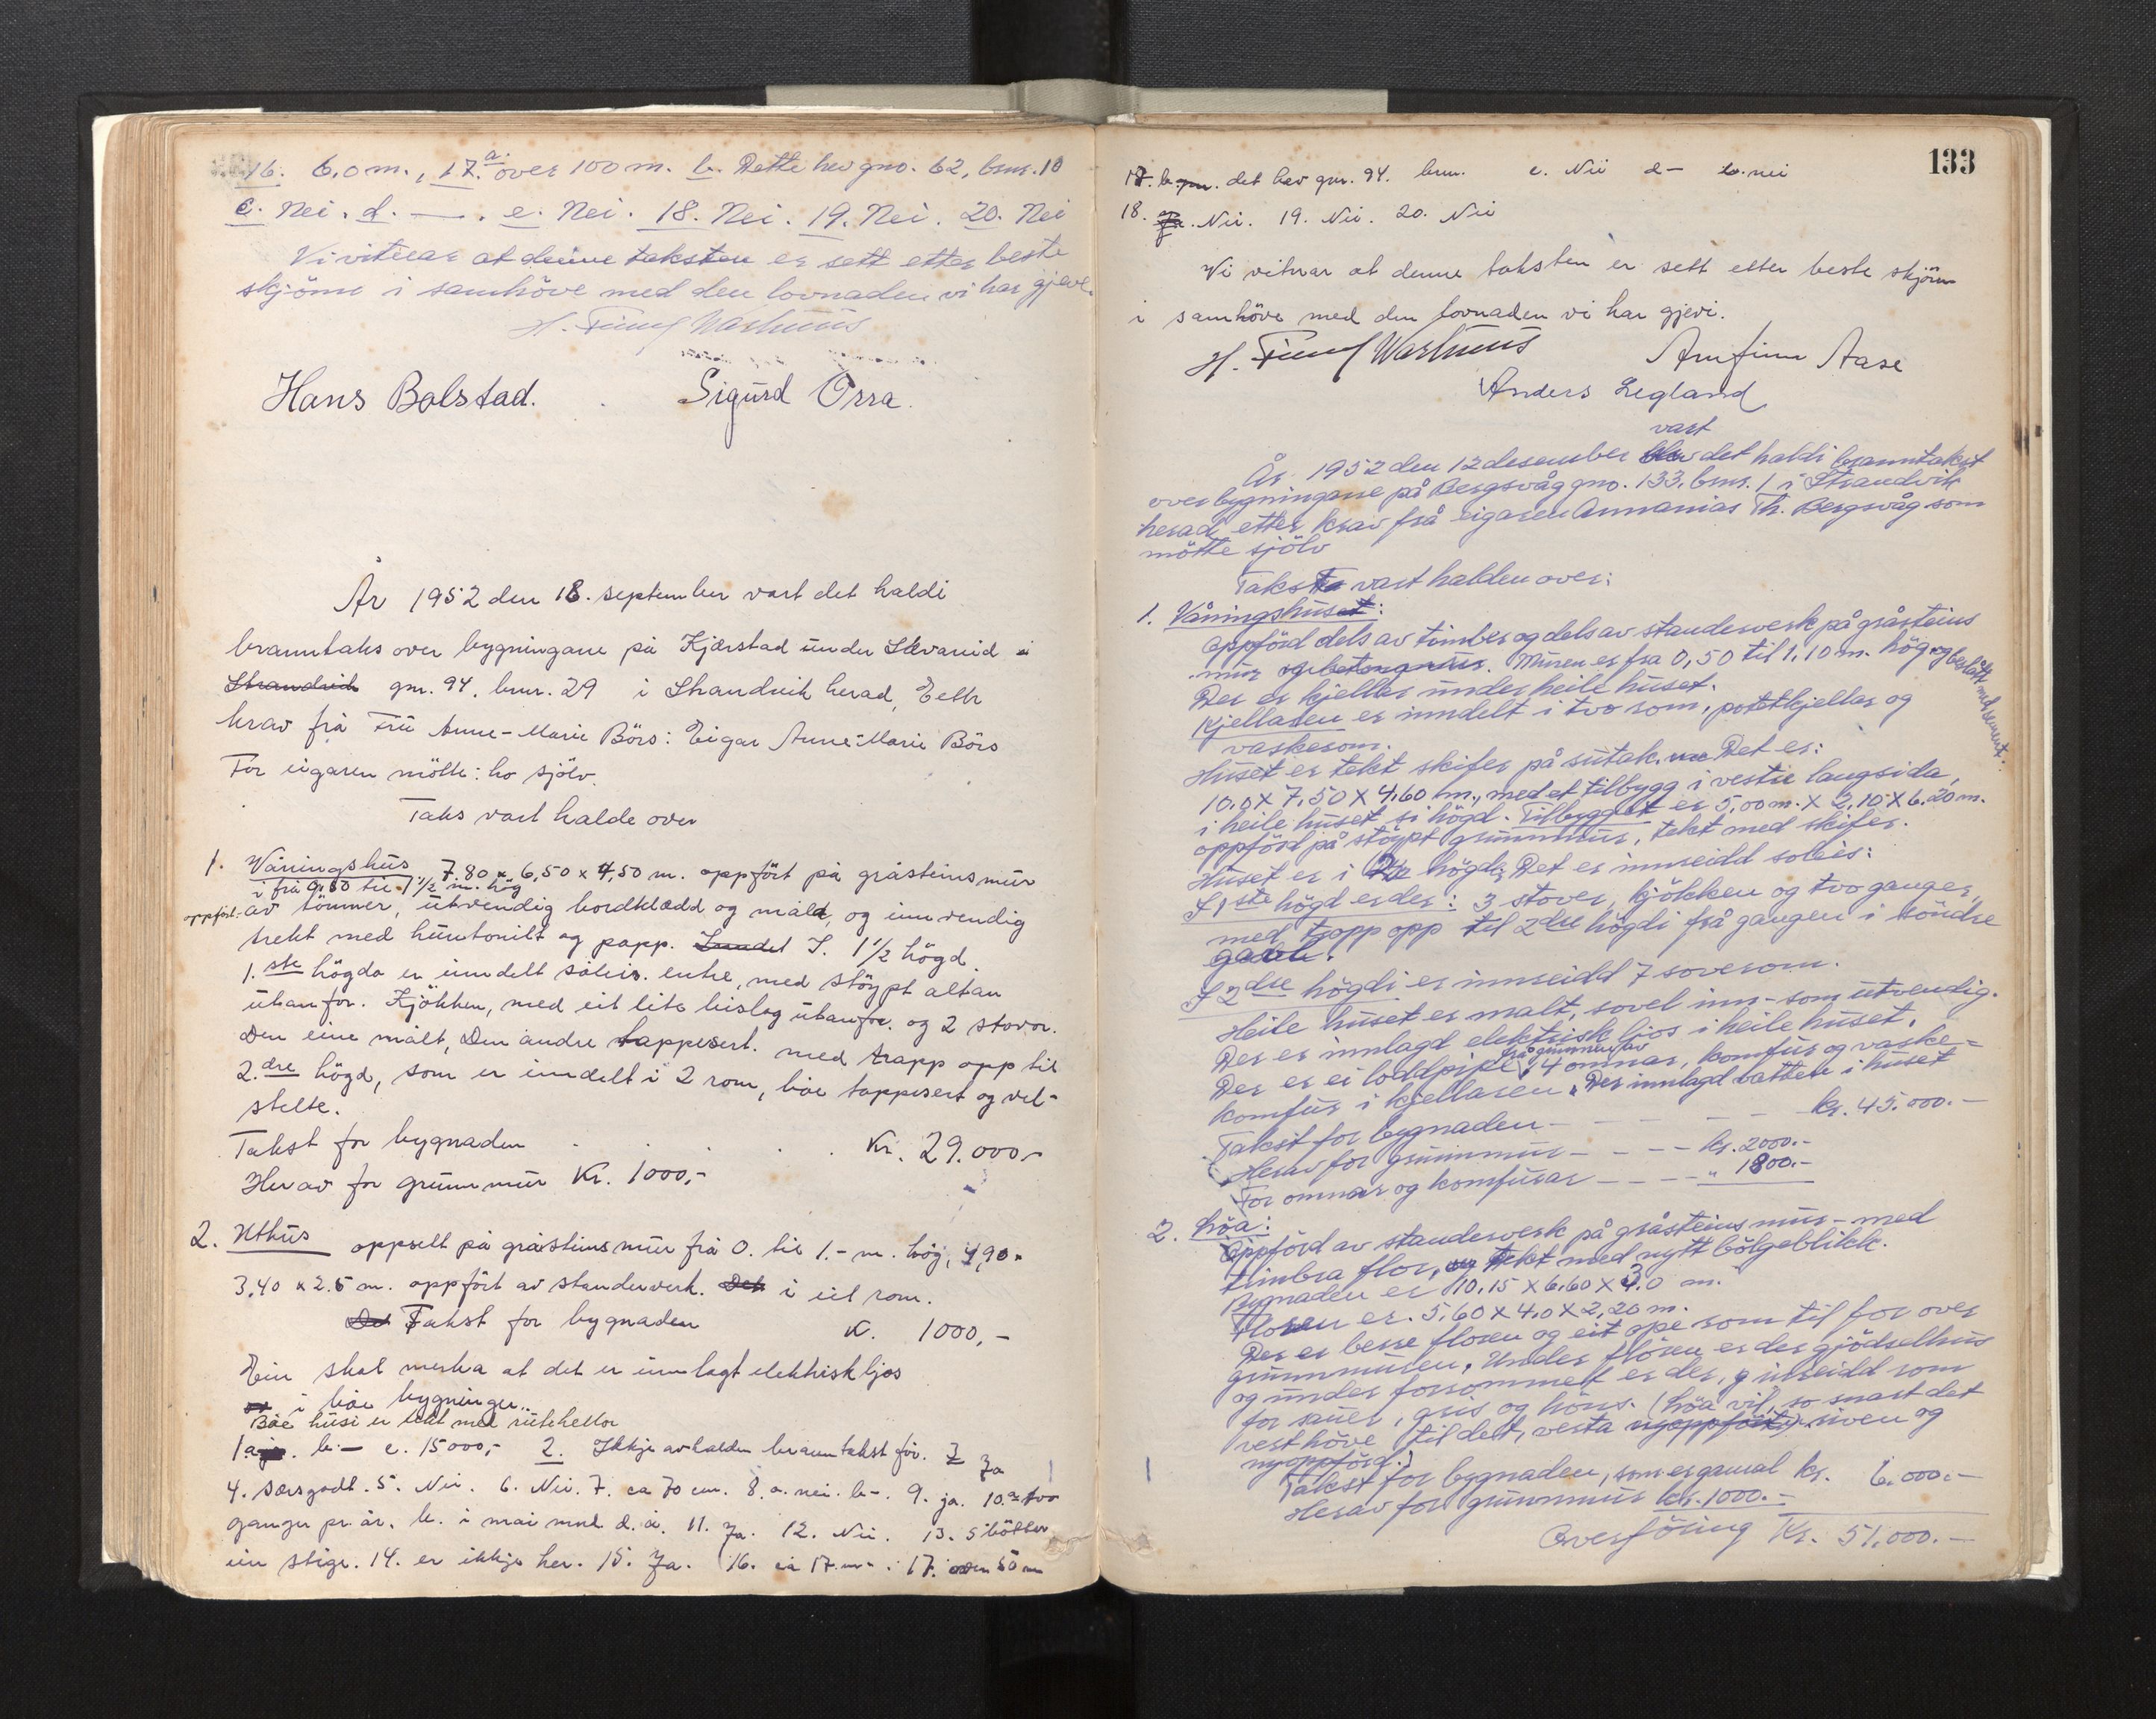 16. 6,0 m., 17.a. over 100 m. b. Dette hev gno. 62, bnr. 10
c. Nei. d. —. e. Nei. 18. Nei. 19. Nei. 20. Nei
Vi vitnar at denne taksten er sett etter beste
skjöne i samhöve med den lovnaden vi har gjeve.
Hans Bolstad. Sigurd Orra.
År 1952 den 18. september vart det haldi
branntaks over bygningane på Kjærstad under Skvareid i
Strandvik gnr. 94, bnr. 29 i Strandvik herad, Etter
krav frå Frü Anne-Marie Börs: Eigar Anne-Marie Börs
For eigaren mötte: ho sjölv.
Taks vart halde over
1. Våningshus 7.80 x 6,50 x 4,50 m. oppfört på gråsteins mur
i frå 0,50 til 1 1/2 m. hög
oppfört av tömmer, utvendig bordklædd og måla, og innvendig
trekt med huntonitt og papp. I. 1 1/2 högd
1.ste högda er inndelt såleis. entre, med stöypt altan
utanfor. Kjökken, med eit lite bislag utanfor. og 2 stovor.
Den eine målt, Den andre tappesert. med trapp opp til
2.dre högd, som er inndelt i 2 rom, båe tappesert og vel-
stelte.
Takst for bygnaden . . . . Kr. 29.000,-
Herav for grunnmur Kr. 1000,-
2. Uthus oppsett på gråsteinsmur frå 0. til 1.- m. hög, 4,90 x
3,40 x 2.5 m. oppfört av standerverk. Det i eit rom.
Det Takst for bygnaden K. 1000,-
Ein skal merka at det er innlagt elektrisk ljos
i båe bygninger..
Båe husi er tekt med rutehellor
1.a. b. — c. 15000,- 2. Ikkje avhalden branntakst för. 3 Ja
4. Særs godt. 5. Nei. 6. Nei. 7. ca 70 cm. 8. a. nei. b -. 9. ja. 10.a. tvo
ganger pr. år. b. i mai mnd d. å. 11. Ja. 12. Nei. 13. 5 bötter
ein stige. 14. er ikkje her. 15. Ja. 16. ca 17. m. 17. 50 m
133
17. b. det hev gnr. 94. bnr. c. Nei d — e. nei
18. Nei. 19. Nei. 20. Nei
Vi vitnar at denne taksten er sett etter beste skjön
i samhöve med den lovnaden vi har gjevi.
Arnfinn Aase
Anders Legland
vart
År 1952 den 12 desember blev det haldi branntakst
over bygningane på Bergsvåg gno. 133, bnr. 1 i Strandvik
herad, etter krav frå eigaren Annanias Th. Bergsvåg som
mötte sjölv
Takst vart halden over:
1. Våningshuset:
Oppförd dels av timber og dels av standerverk på gråsteins
mur og betongmur. Muren er fra 0,50 til 1,10 m. hög og beslått med sement.
Der er kjeller under heile huset.
Kjellaren er inndelt i tvo rom, potetkjellar og
vaskerom.
Huset er tekt skifer på sutak. Det er:
10,0 x 7,50 x 4,60 m., med et tilbygg i vestre langsida,
i heile huset si högd. Tilbygget er 5,00 m. x 2,10 x 6.20 m.
oppförd på stöypt grunnmur, tekt med skifer.
Huset er i 2 högder Det er innreidd soleis:
I 1ste högd er der: 3 stover, kjökken og tvo ganger,
med trapp opp til 2dre högdi frå gangen i söndre
gavle.
I 2dre högdi er innreidd 7 soverom.
Heile huset er malt, sovel inn- som utvendig.
Der er innlagd elektrisk ljos i heile huset.
frå grunnen av
Der er ei loddpipe, 4 omnar, komfur og vaske-
komfur i kjellaren. Der innlagd vatten i huset
Takst for bygnaden - - - - - kr. 45.000.-
Herav for grunnmur - - - - kr. 2000.-
For omnar og komfurar - - - - " 1800.-
2. Löa:
Oppförd av standerverk på gråsteins mur - med
timbra flor, og tekt med nytt bölgeblikk.
Bygnaden er 10,15 x 6,60 x 3,0 m.
Floren er. 5,60 x 4,0 x 2,20 m.
Der er berre floren og eit ope rom til for over
grunnmuren. Under floren er der gjödselhus
og under forrommet er der, g innreidd rom
for sauer, gris og höns. (löa vil, so snart det
vert höve til det, verta nyoppfört) riven og
nyoppförd.)
Takst for bygnaden, som er gamal kr. 6.000.-
Herav for grunnmur kr. 1000.-
Overföring Kr. 51,000.-